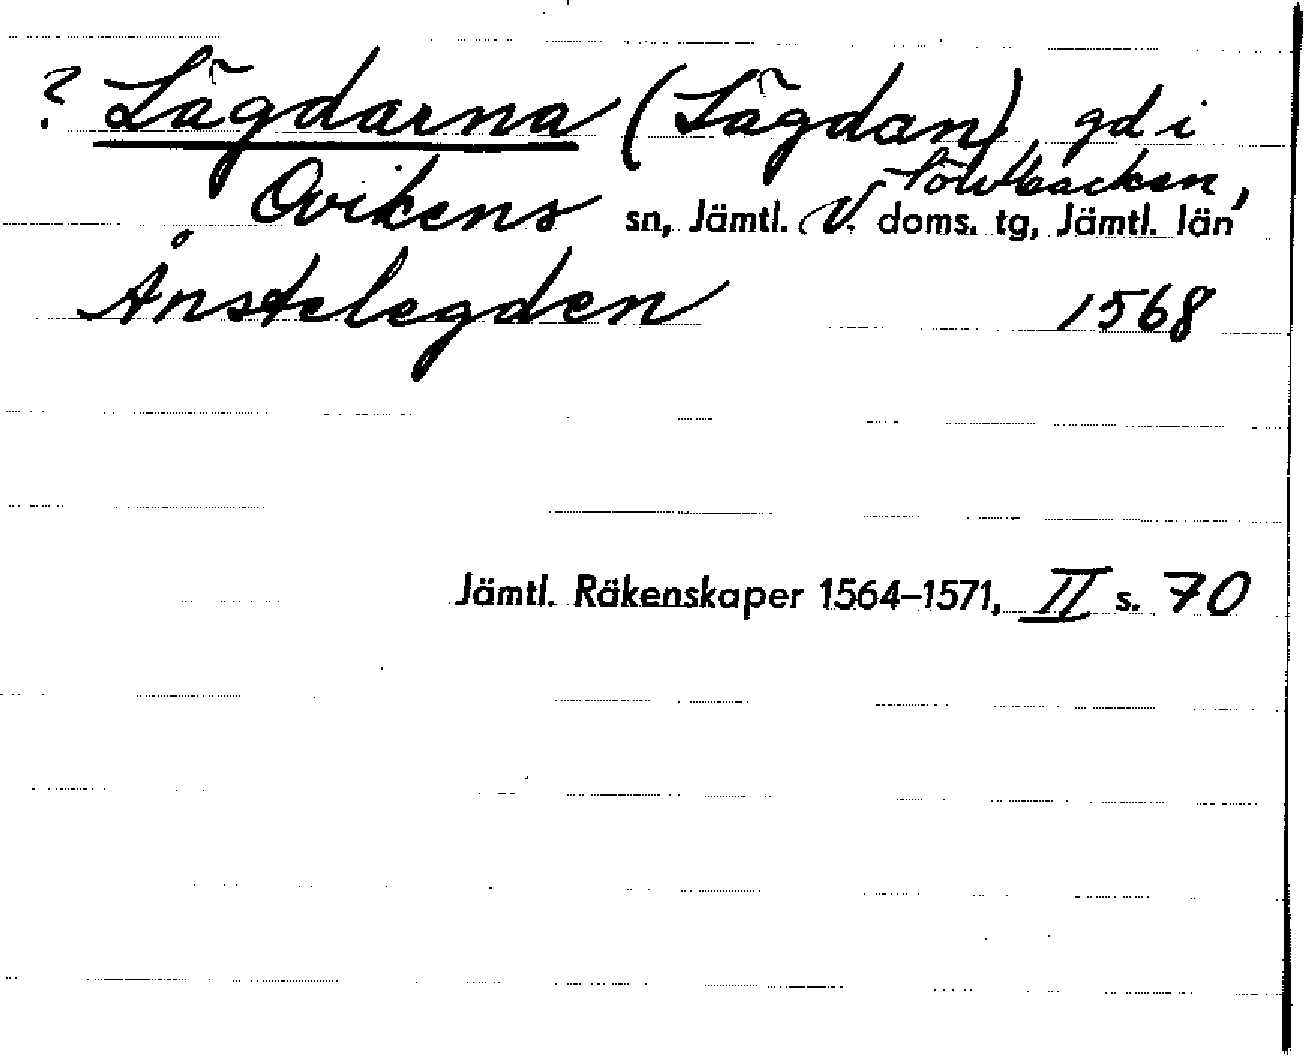 ? Lägdarna (Lägdan) gd i
Lövbacken,
Ovikens sn, Jämtl. V. doms. tg, Jämtl. län
Ånstelegden 1568
Jämtl. Räkenskaper 1564–1571, II s. 70